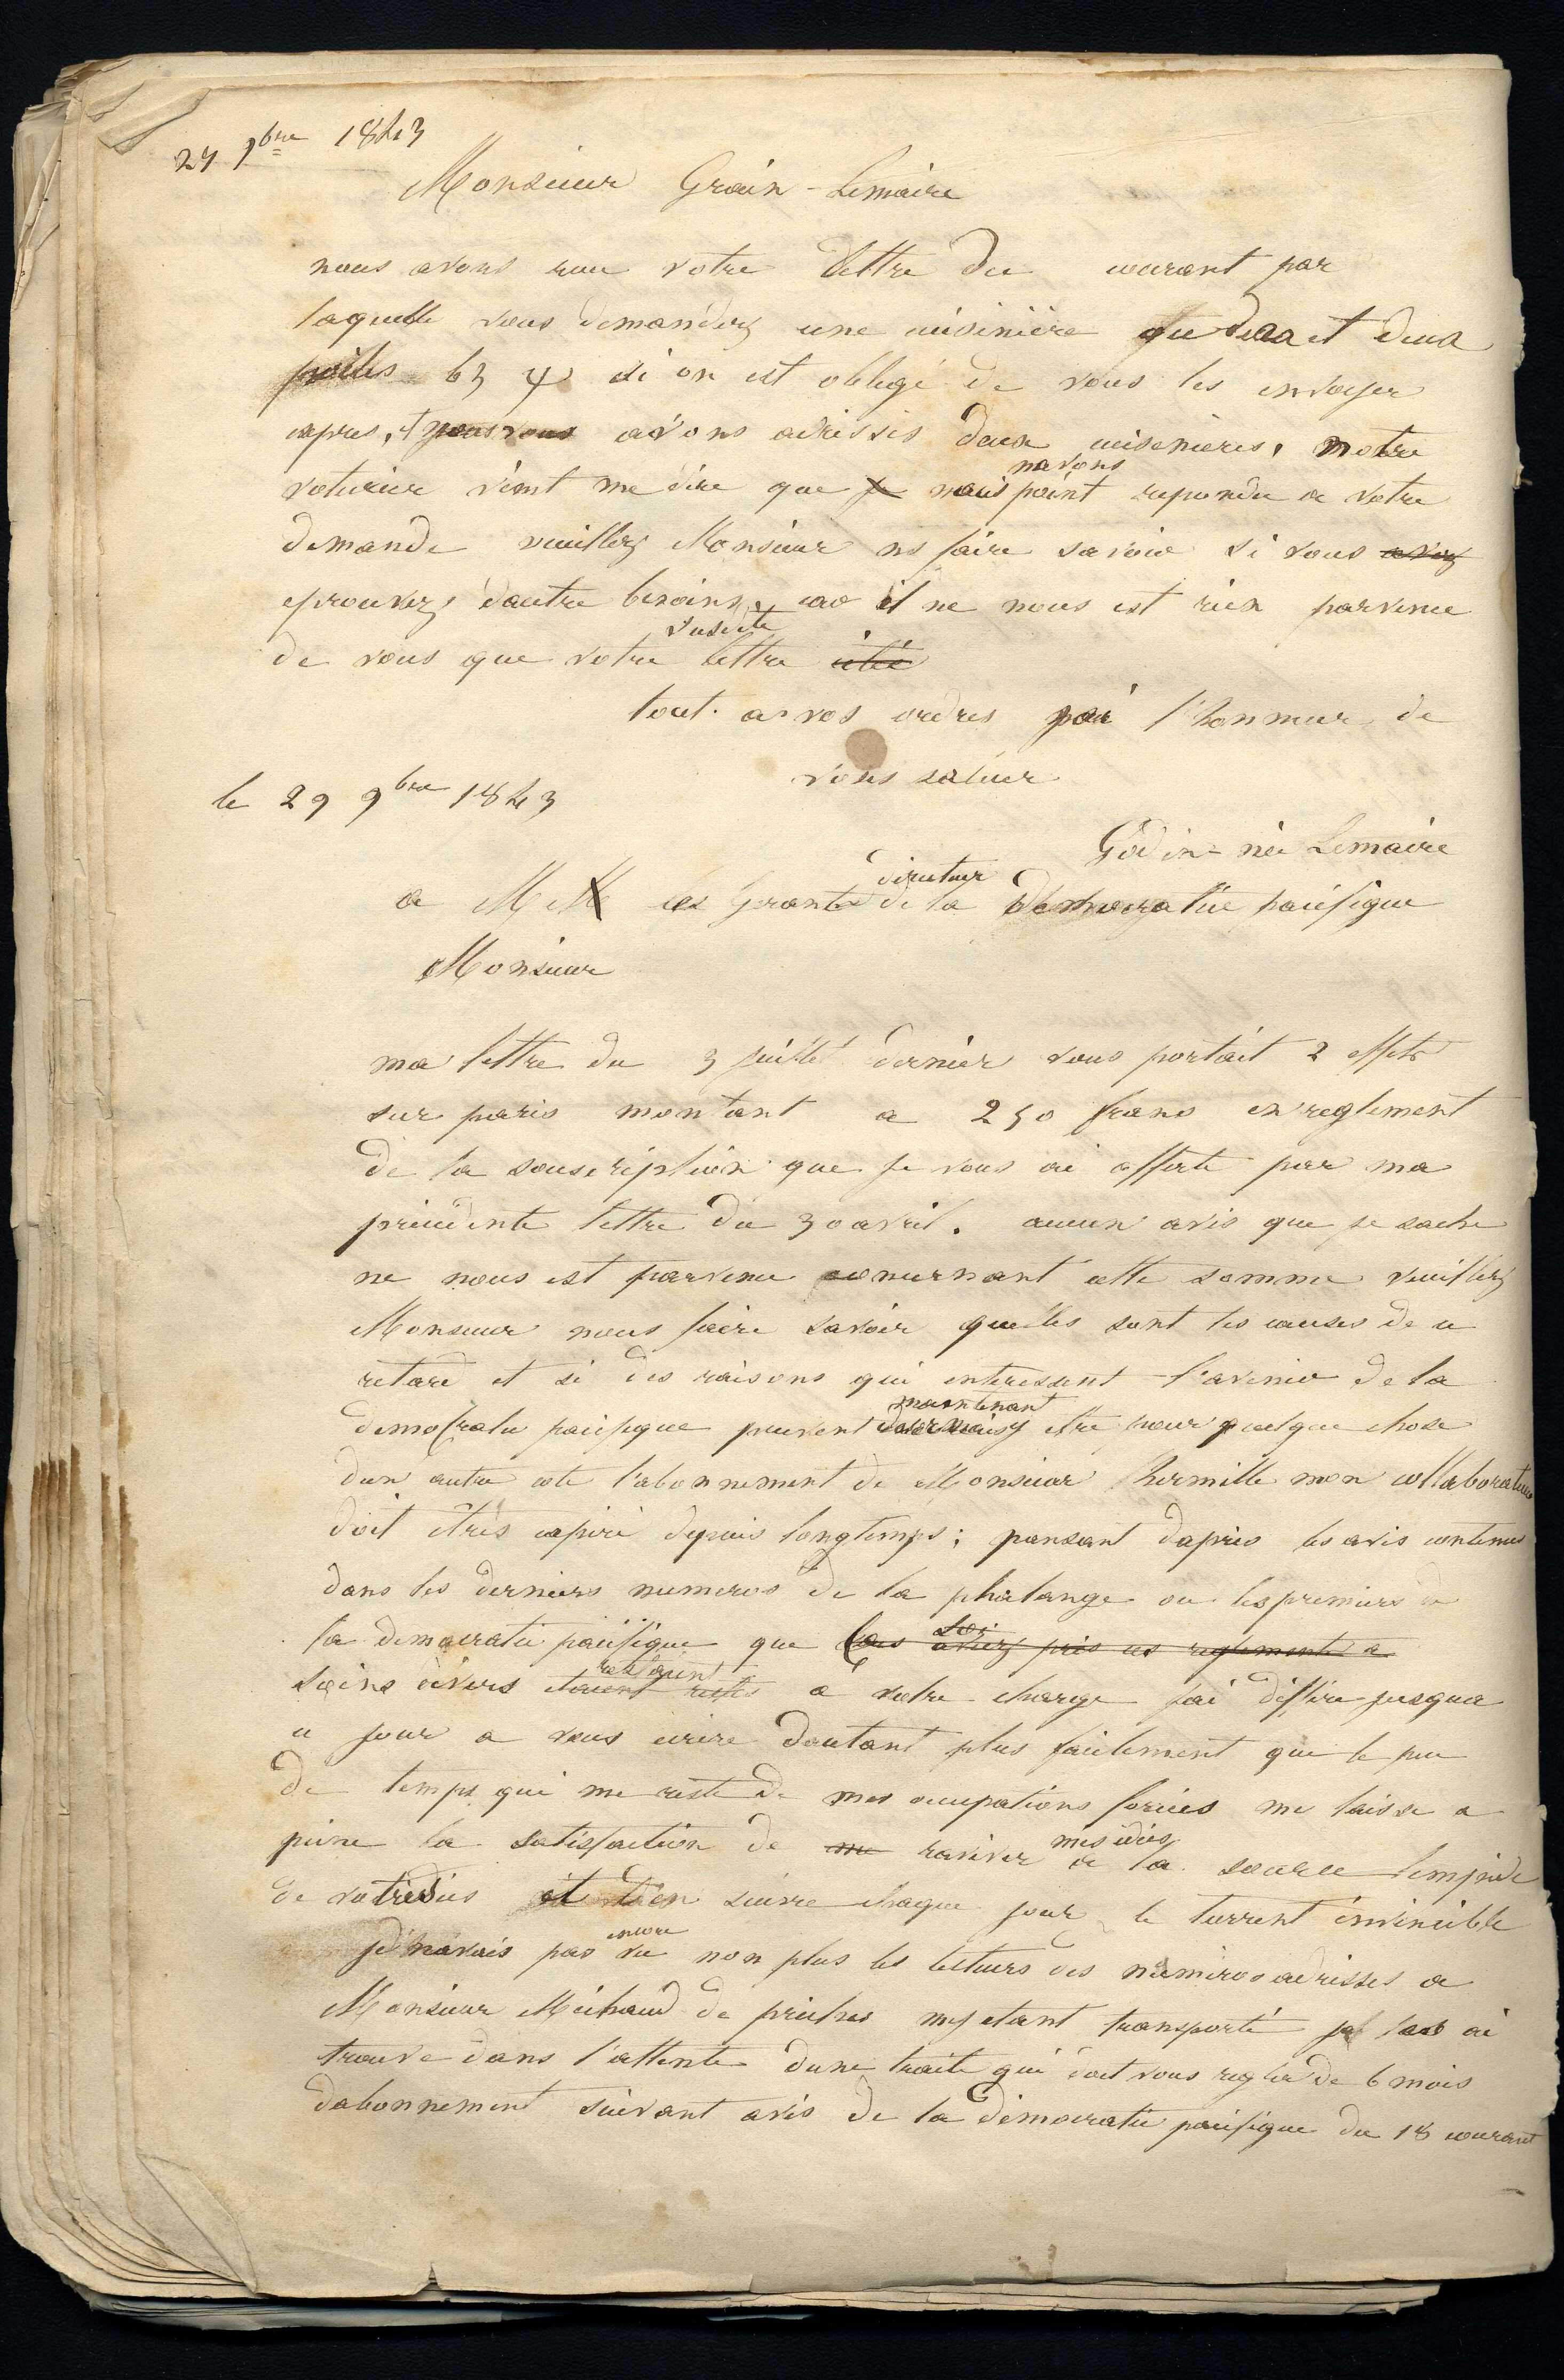 27 9bre 1843
Monsieur Grain-Lemaire
nous avons reçu votre lettre du courant par
laquelle vous demandez une cuisinière et deux
poiles b3 si on est oblige de vous les envoyer
apres, nous vous avons adressés deux cuisenieres, notre
voturier vient me dire que je navons point repondu a votre
demande veuillez Monsieur ns faire savoir si vous avez
eprouvez dautre besoins, car il ne nous est rien parvenue
de vous que votre lettre susdite citée
tout a vos ordres jai l'honneur de
vous saluer
Godin-née Lemaire
le 29 9bre 1843
a M les Gerants directeur de la democratie pacifique
Monsieur
ma lettre du 3 juillet dernier vous portait 2 effets
sur paris montant a 250 francs en reglement
de la souscription que je vous ai offerte par ma
précedente lettre du 30 avril. aucun avis que je sache
ne nous est parvenue concernant cette somme veuillez
Monsieur nous faire savoir quelles sont les causes de ce
retard et si des raisons qui interessent l'avenir de la
democratie pacifique peuvent maintenant etre pour quelque chose
dun autre coté l'abonnement de Monsieur hermille mon collaborateur
doit être expiré depuis longtemps; pensant daprès les avis contenus
dans les derniers numeros de la phalange ou les premiers d
la democratie pacifique que aviez pris ces reglements a
soins divers etaient restés restaient a votre charge jai differe jusqua
ce jour a vous ecrire dautant plus facilement que le peu
de temps qui me reste de mes occupations forcées me laisse a
peine la satisfaction de me raviver mes idées a la source limpide
de et d'en suivre chaque jour le torrent invincible
je navais pas encore vu non plus les lecteurs des numéros adressés a
Monsieur Michaud de prisches my etant transporté je ai
trouve dans l'attente dune traite qui doit vous regler de 6 mois
dabonnement suivant avis de la démocratie pacifique du 18 courant